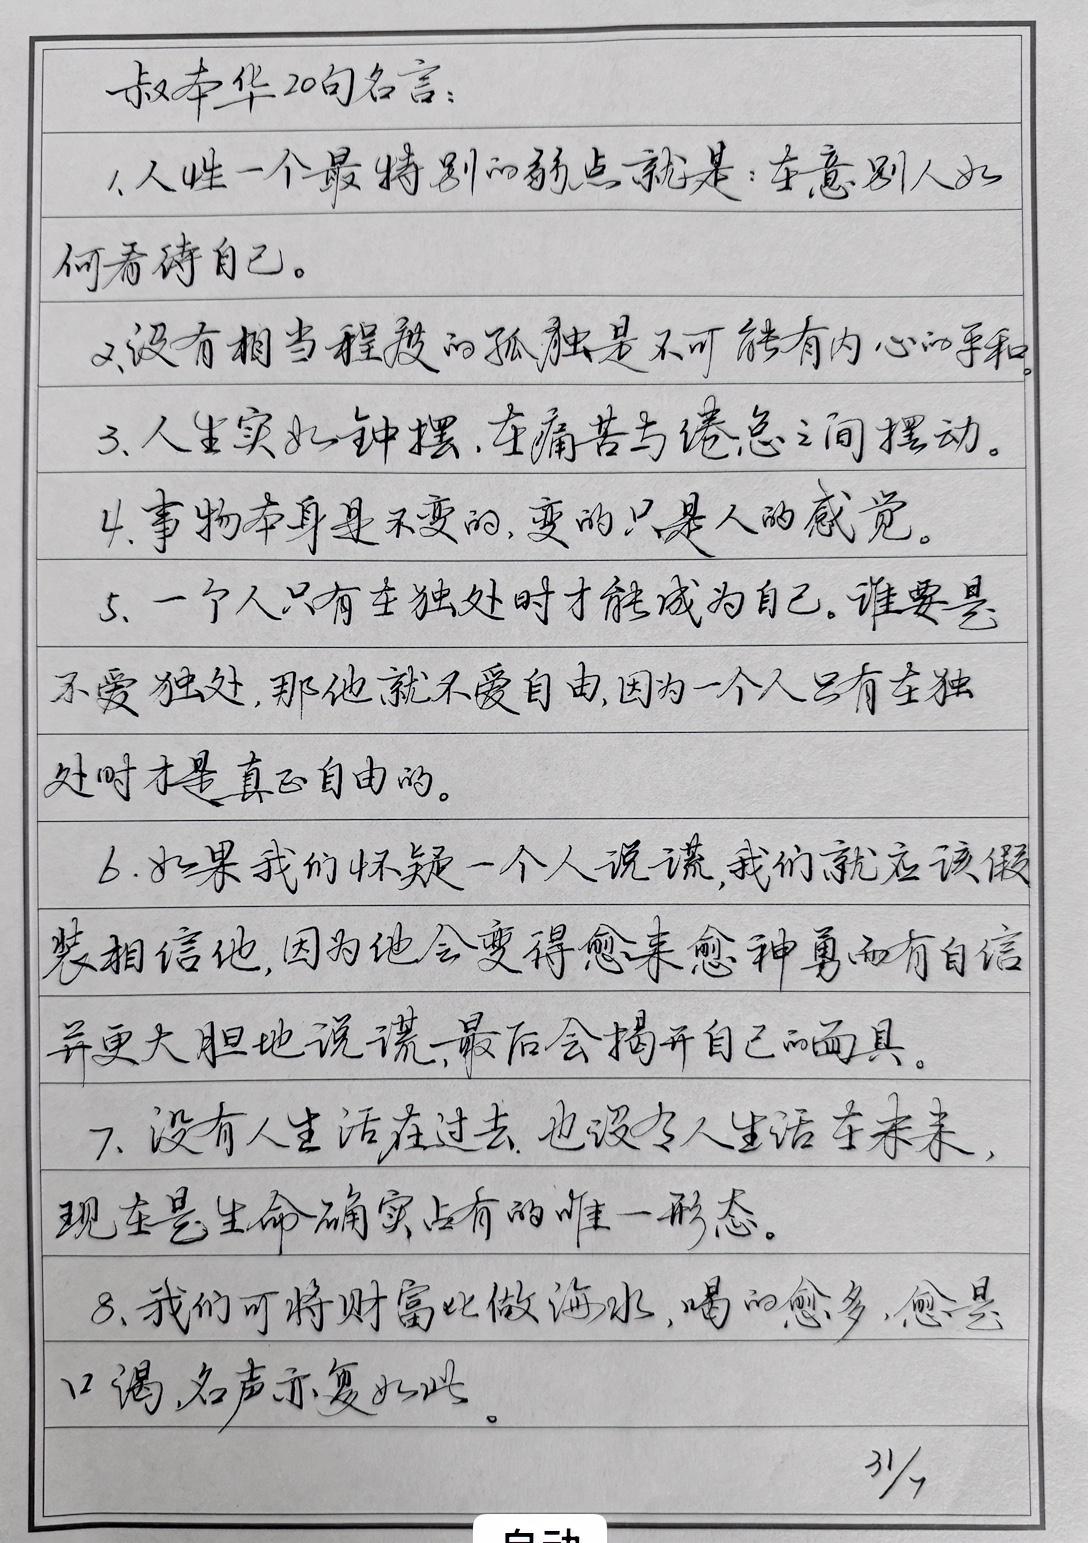 叔本华20句名言：
1、人性一个最特别的弱点就是：在意别人如
何看待自己。
2、没有相当程度的孤独是不可能有内心的平和。
3、人生实如钟摆，在痛苦与倦怠之间摆动。
4、事物本身是不变的，变的只是人的感觉。
5、一个人只有在独处时才能成为自己。谁要是
不爱独处，那他就不爱自由，因为一个人只有在独
处时才是真正自由的。
6.如果我们怀疑一个人说谎，我们就应该假
装相信他，因为他会变得愈来愈神勇而有自信
并更大胆地说谎，最后会揭开自己的面具。
7、没有人生活在过去，也没有人生活在未来，
现在是生命确实占有的唯一形态。
8、我们可将财富比做海水，喝的愈多，愈是
口渴，名声亦复如此。
31/7
自动